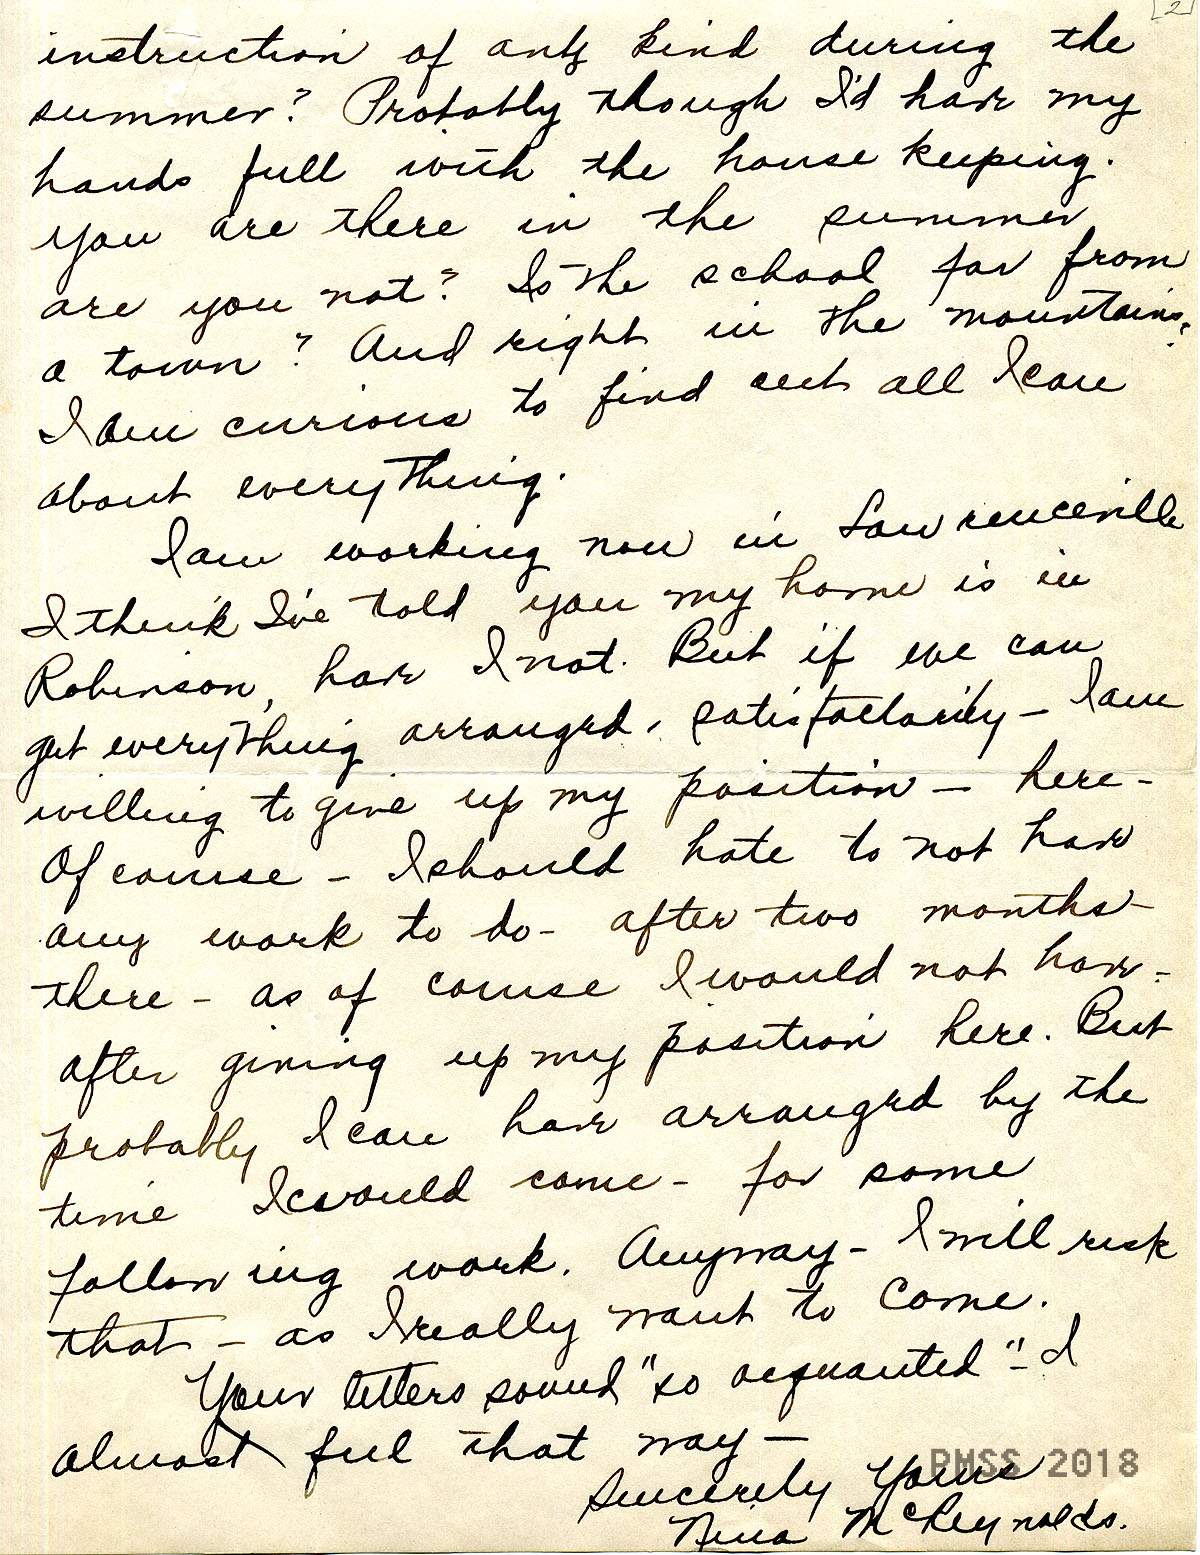 [2]
instruction of any kind during the
summer? Probably though I'd have my
hands full with the house keeping.
You are there in the summer
are you not? Is the school far from
a town? And right in the mountains.
I am curious to find out all I can
about everything.
I am working now in Lawrenceville
I think I've told you my home is in
Robinson, have I not. But if we can
get everything arranged, satisfactorily – I am
willing to give up my position – here –
Of course – I should hate to not have
any work to do – after two months –
there – as of course I would not have –
after giving up my position here. But
probably I can have arranged by the
time I would come – for some
following work. Anyway – I will risk
that – as I really want to come.
Your letters sound "so acquanted" – I
almost feel that way –
Sincerely Yours
PMSS 2018
Nina McReynolds.